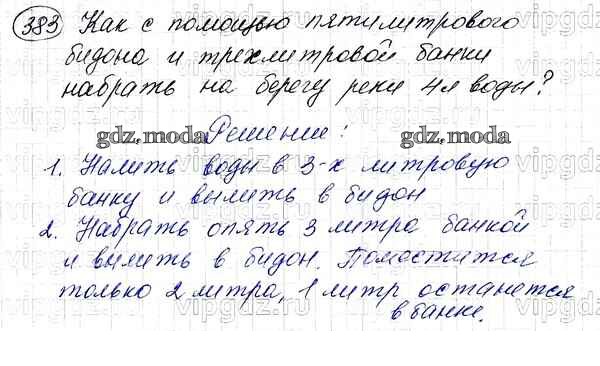 383 Как с помощью пятилитрового
бидона и трехлитровой банки
набрать на берегу реки 4л воды?
gdz.moda Решение: gdz.moda
1. Налить воды в 3-х литровую
банку и вылить в бидон
2. Набрать опять 3 литра банкой
и вылить в бидон. Поместится
только 2 литра, 1 литр останется
в банке.